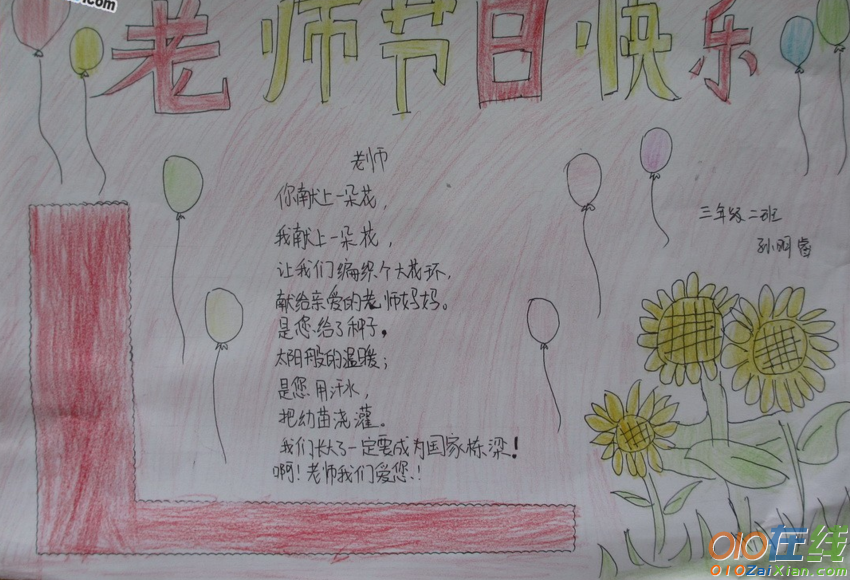 老师节日快乐
老师
你献上一朵花，
我献上一朵花，
让我们编织个大花环，
献给亲爱的老师妈妈。
是您给了种子，
太阳般的温暖；
是您用汗水，
把幼苗浇灌。
我们长大了一定要成为国家栋梁！
啊！老师我们爱您！
三年级二班
孙明
010在线
010ZaiXian.com